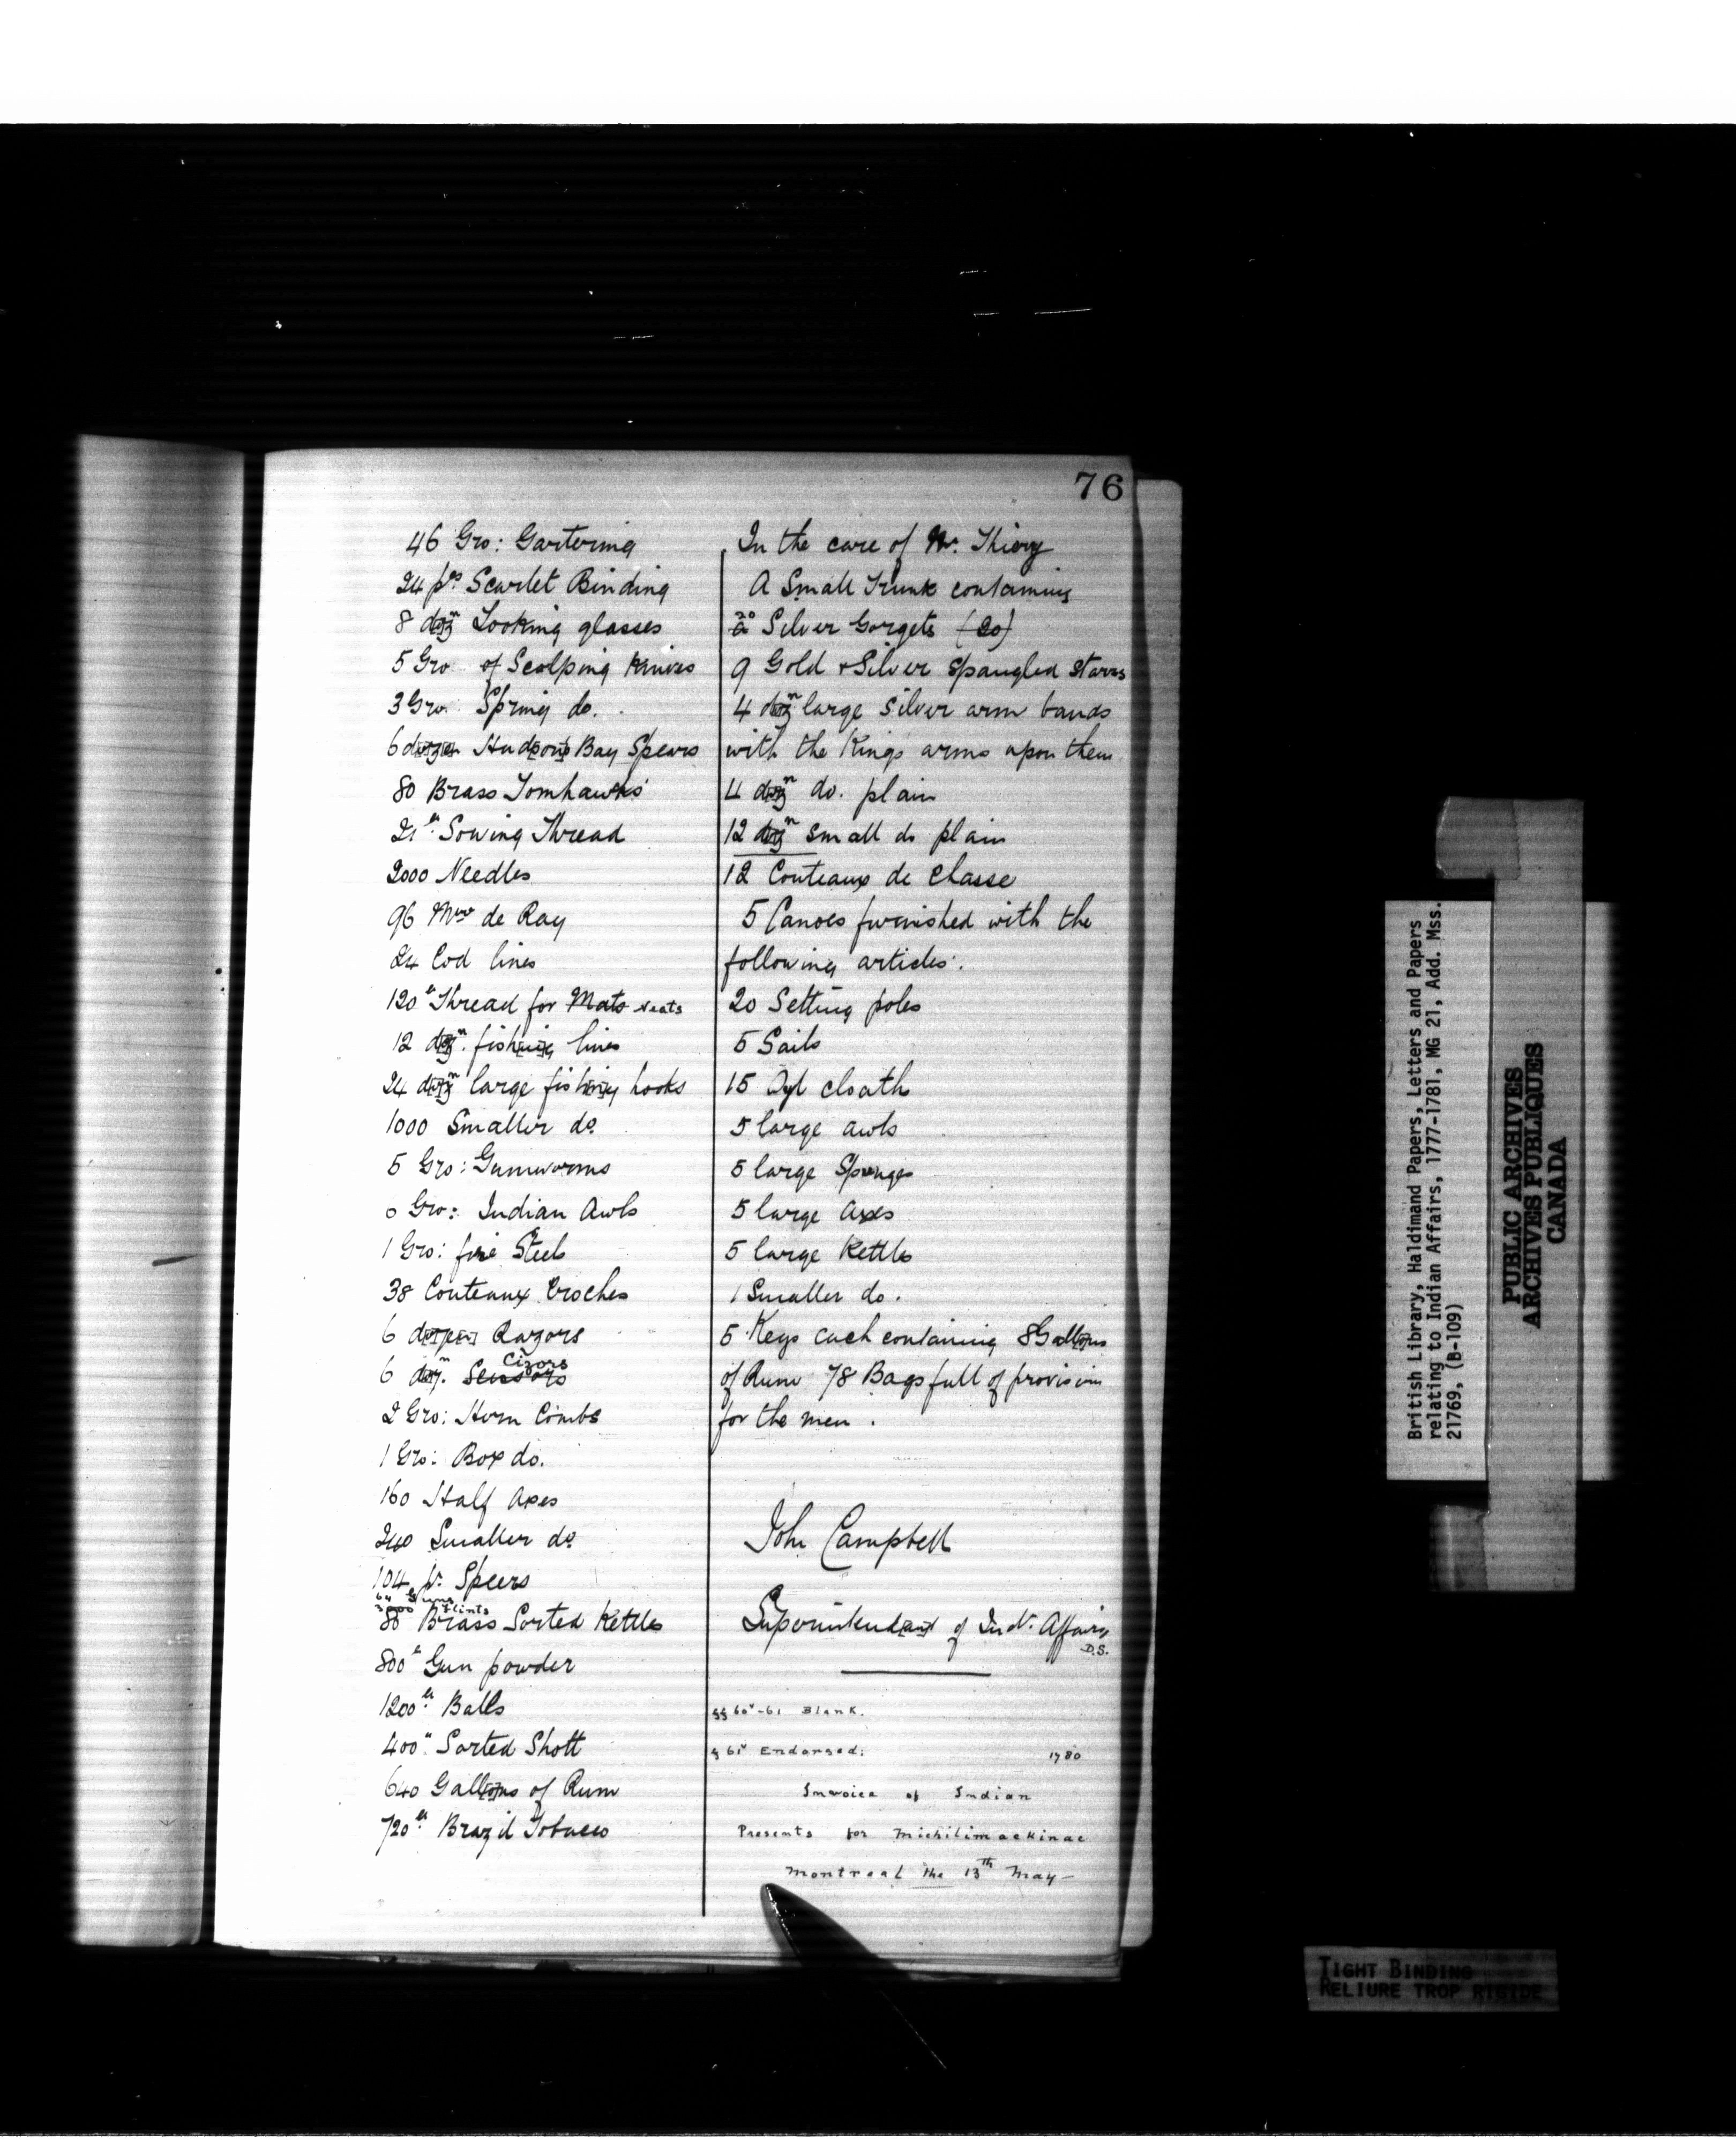 76
46 Gro: Gartering
24 ps Scarlet Binding
8 dozn Looking glasses
5 Gro of Scalping Knives
3 Gro. Spring do.
6 dozen Hudsons Bay Spears
80 Brass Tomhawks
21 lb. Sowing Thread
2000 Needles
96 de Ray
24 Cod lines
120 lb Thread for Mats Neats
12 dozn. fishing lines
24 dozn large fishing hooks
1000 Smaller do
5 Gro: Gunworms
Gro: Indian Awls
1 Gro: fire Steels
38 Couteaux Croches
6 dozen Razors
6 dozn. Scissors Cizors
2 Gro: Horn Combs
1 Gro: Box do.
160 Half Axes
240 Smaller do
104 pr. Speers
64 Guns
3000 Flints
80 Brass Sorted Kettles
800 lb Gun powder
1200 lb. Balls
400 " Sorted Shott
640 Gallons of Rum
720 lb. Brazil Tobacco
In the care of Mr. Thiery
A Small Trunk containing
20 Silver Gorgets (20)
9 Gold & Silver Spangled Starrs
4 dozn large Silver arm bands
with the Kings arms upon them
4 dozn do. plain
12 dozn small do plain
12 Couteaux de Chasse
5 Canoes furnished with the
following articles.
20 Setting poles
5 Sails
15 Oyl cloath
5 large awls
5 large Sponges
5 large Axes
5 large Kettles
1 Smaller do.
5 Kegs each containing 8 Gallons
of Rum 78 Bags full of provision
for the men.
John Campbell
Superintendant of Indn. Affairs
D.S.
§§ 60v-61 Blank.
§ 61v Endorsed: 1780
Invoice of Indian
Presents for Michilimackinac
Montreal the 13th May –
British Library, Haldimand Papers, Letters and Papers
relating to Indian Affairs, 1777-1781, MG 21, Add. Mss.
21769, (B-109)
PUBLIC ARCHIVES
ARCHIVES PUBLIQUES
CANADA
TIGHT BINDING
RELIURE TROP RIGIDE